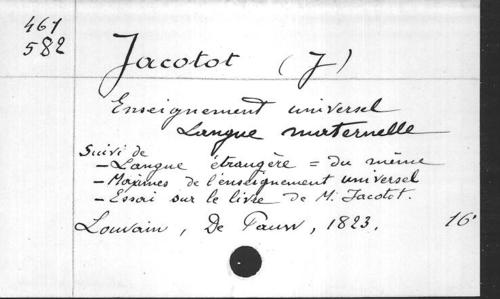 461
582
Jacotot (J)
Enseignement universel
Langue maternelle
Suivi de
- Langue étrangère = du même
- Maximes de l'enseignement universel
- Essai sur le livre de M. Jacotot.
Louvain, De Pauw, 1823. 16°